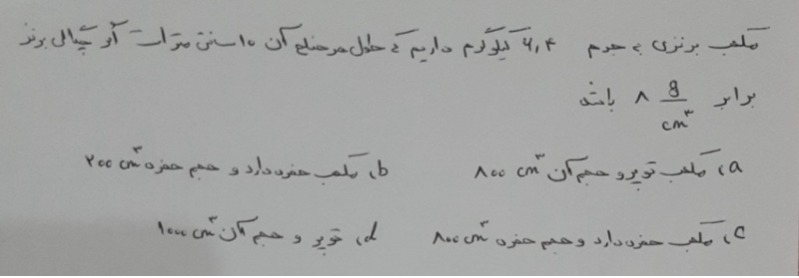 مکعب برنزی به جرم ۶,۴ کیلوگرم داریم که طول هر ضلع آن ۱۰ سانتی متر است اگر چگالی برنز
برابر ۸ g/cm³ باشد
a) مکعب توپر و حجم آن ۸۰۰ cm³ b) مکعب حفره دارد و حجم حفره ۲۰۰ cm³
c) مکعب حفره دارد و حجم حفره ۸۰۰ cm³ d) توپر و حجم آن ۱۰۰۰ cm³